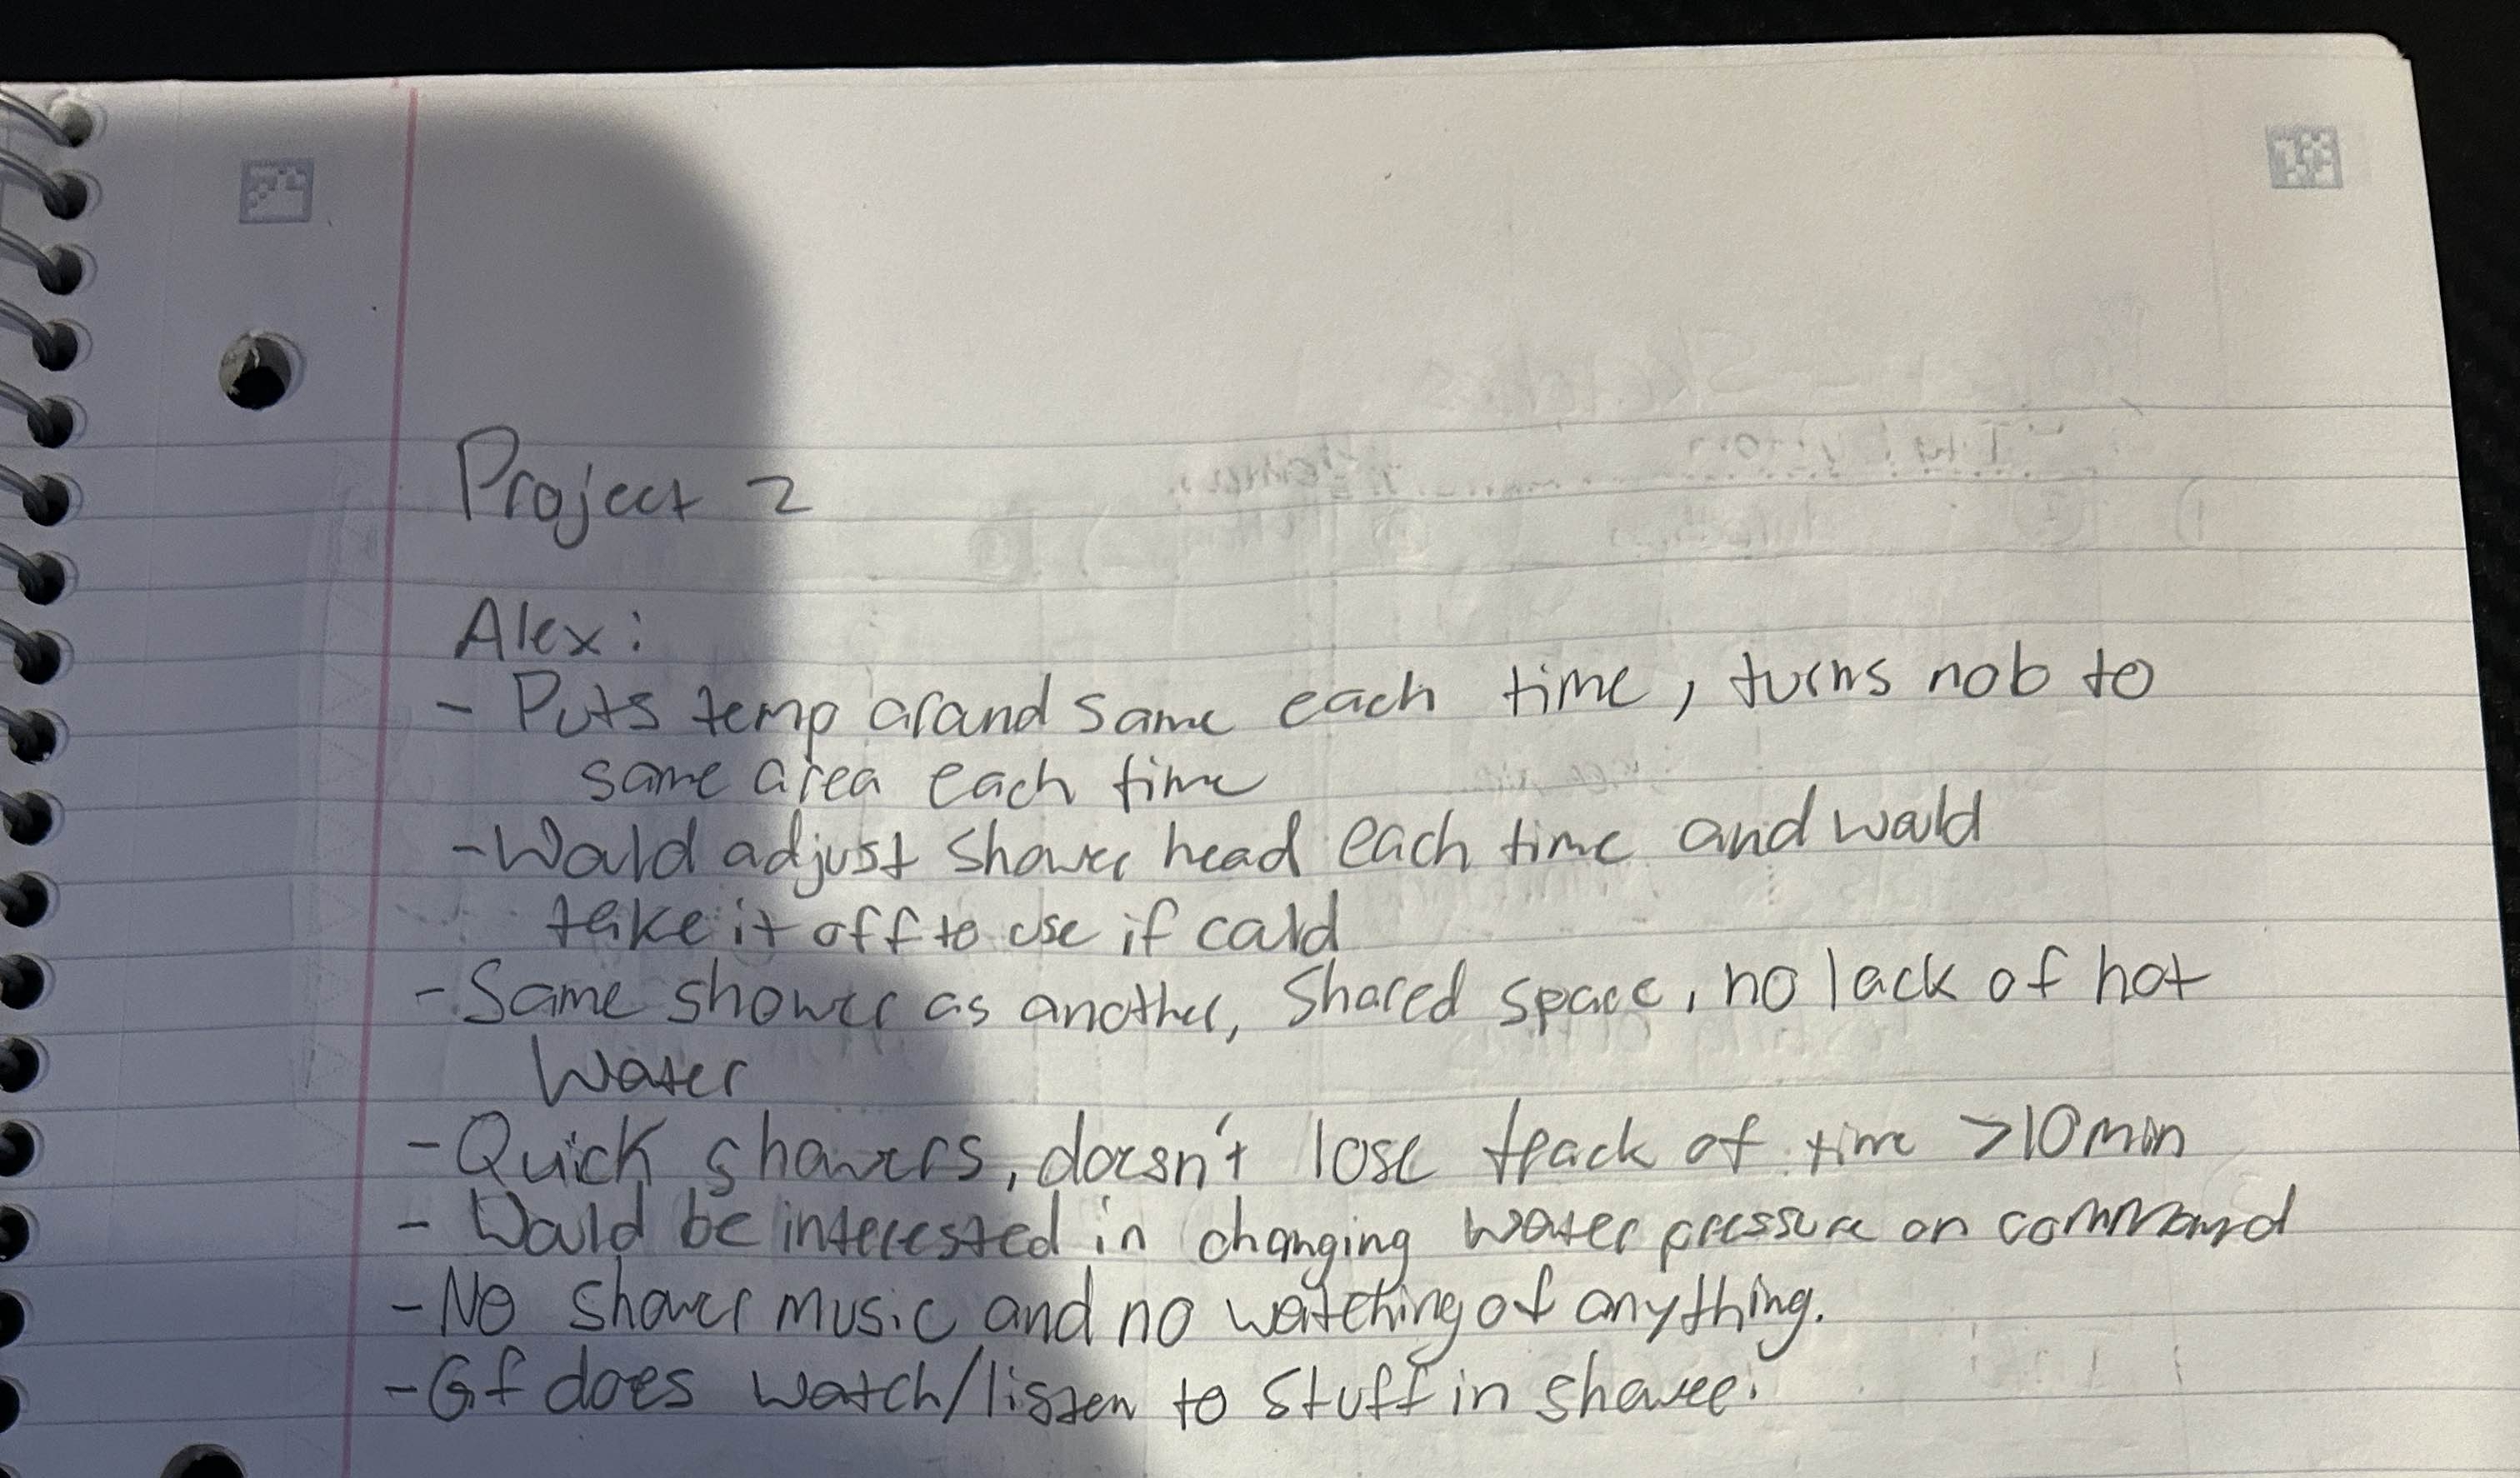 Project 2
Alex:
- Puts temp around same each time, turns nob to
same area each time
- Would adjust shower head each time and would
take it off to use if could
- Same shower as another, shared space, no lack of hot
water
- Quick showers, doesn't lose track of time >10min
- Would be interested in changing water pressure on command
- No shower music and no watching of anything.
- Gf does watch/listen to stuff in shower.